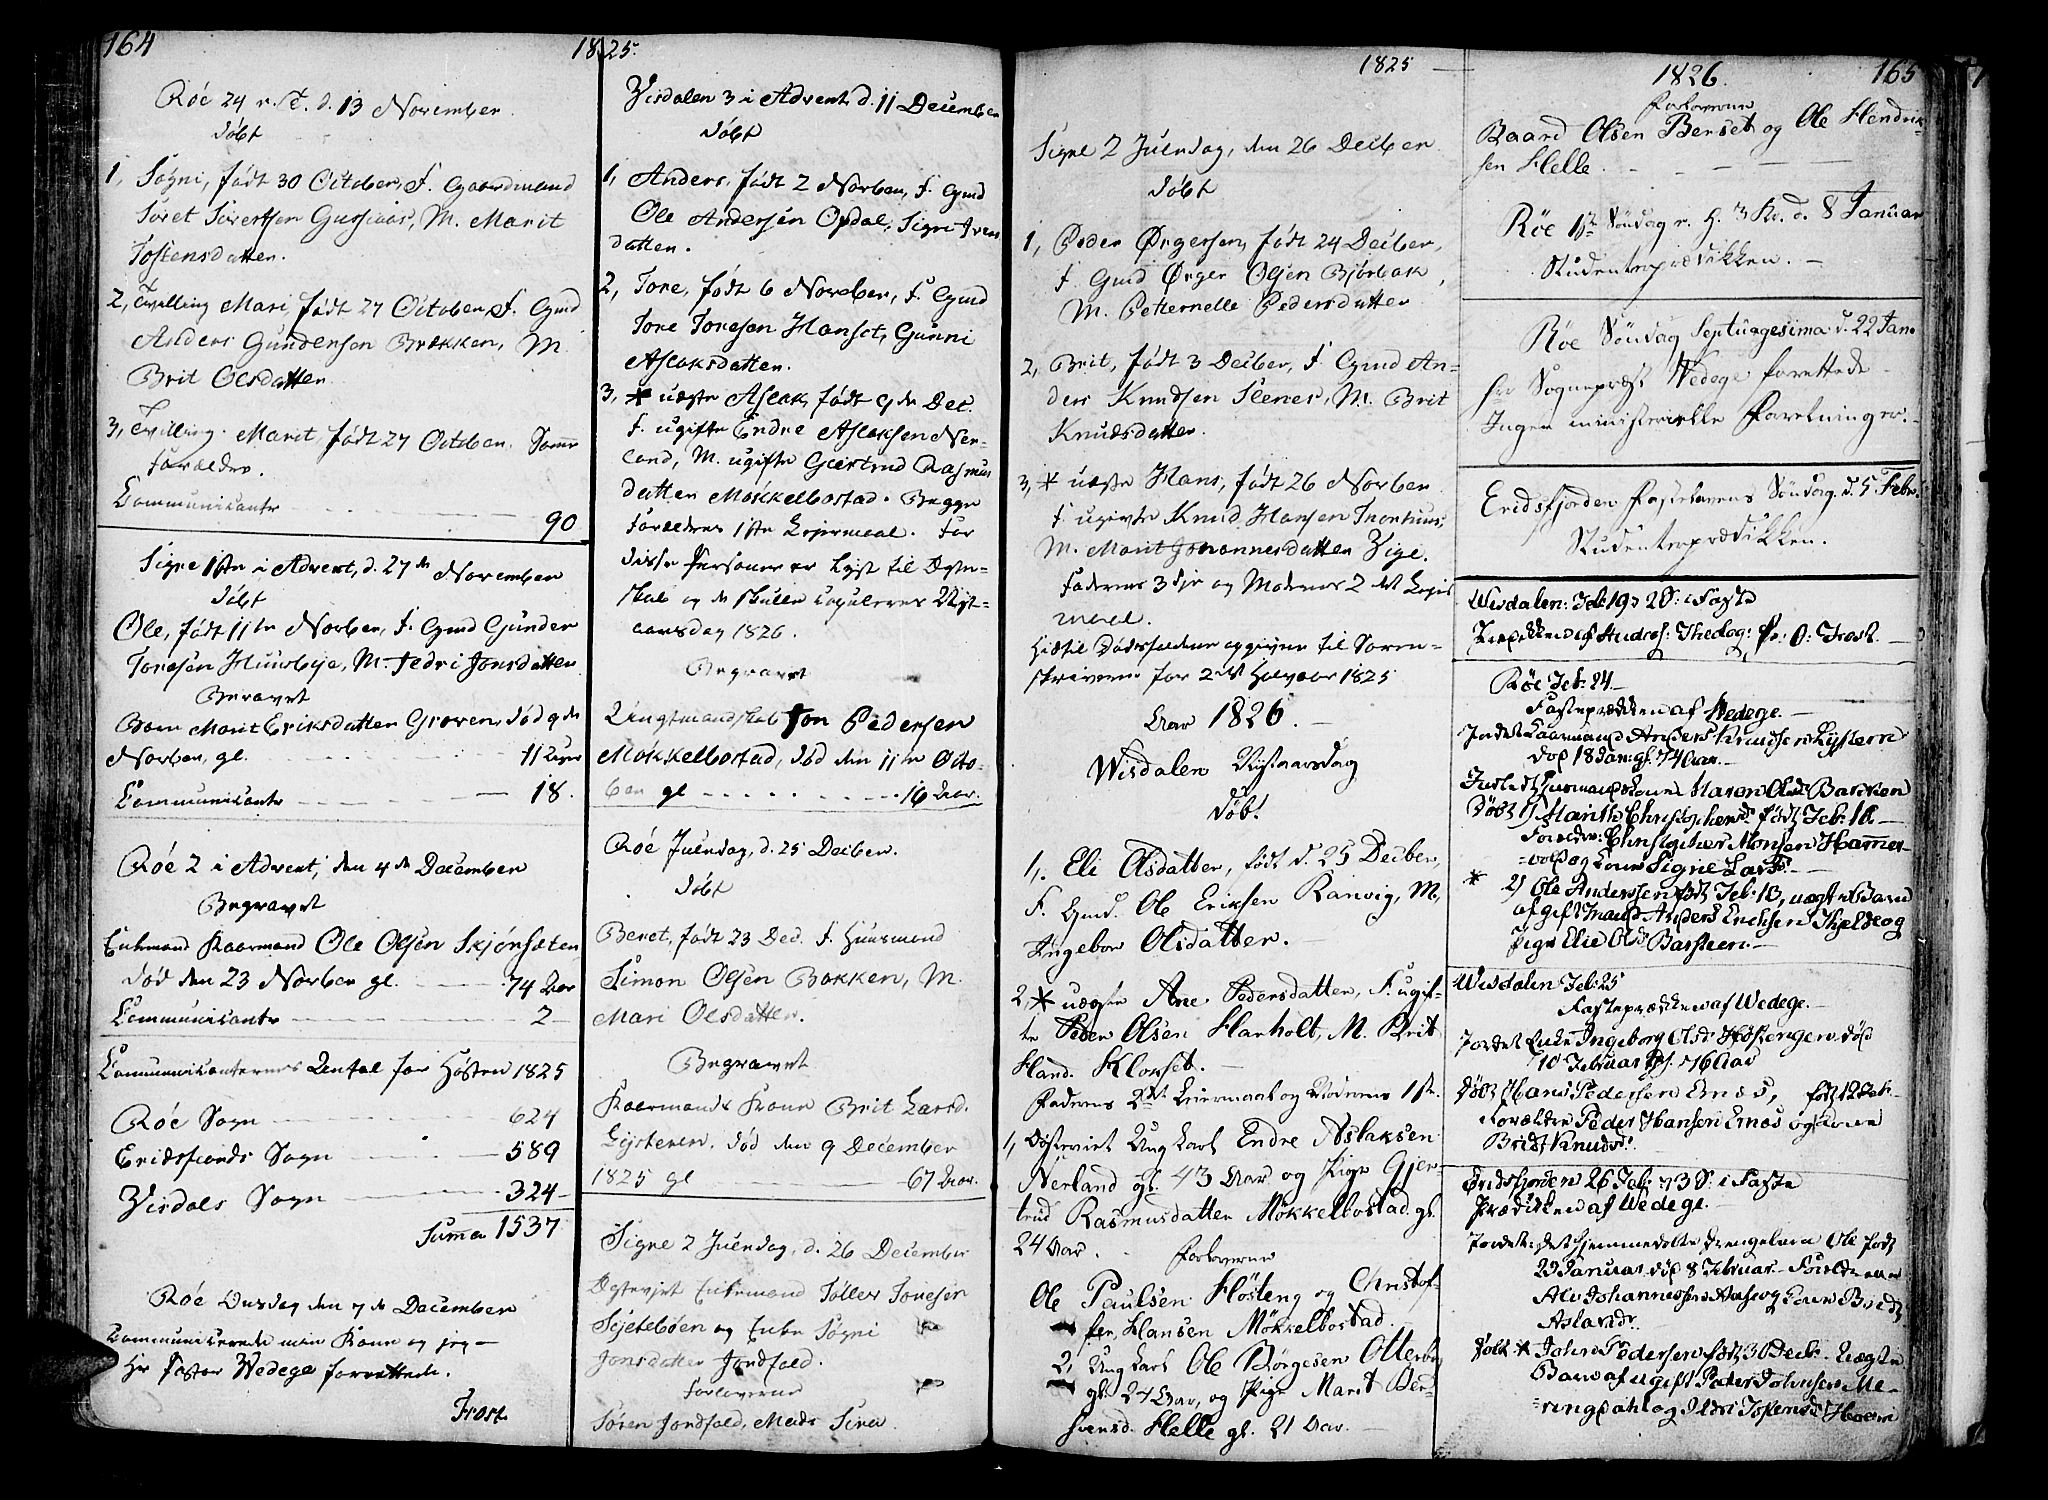 164
1825.
Röe 24 r. St. d. 13 November
döbt
1, Sögni, født 30 October, F. Gaardmand
Siret Sivertsen Gussiaas, M. Marit
Tostensdatter.
2, Tvilling Mari, født 27 October, F. Gmd
Anders Gundersen Brækken, M.
Brit Olsdatter
3, Tvilling Marit, født 27 October. Samme
Forældre.
Communicanter 90
Signe 1ste i Advent, d. 27de November
döbt
Ole, født 11te Novber, F. Gmd Gunder
Toresen Huusbye, M. Jedri Jonsdatter
Begravet
Barn Marit Eriksdatter Groven, död 9de
Novber, gl. 11 Uger
Communicanter 18.
Röe 2 i Advent, den 4de December
Begravet
Enkemand Kaarmand Ole Olsen Skjönsæten
död den 23 Novber gl. 74 Aar
Communicanter 2
Communicanternes Antal for Hösten 1825
Röe Sogn 624
Eridsfiords Sogn 589
Visdals Sogn 324
Summa 1537
Röe Onsdag den 7de December
Communicerede min Kone og jeg
Hr Pastor Wedege forrettede.
Frost
Visdalen 3 i Advent, d. 11 December
döbt
1, Anders, født 2 Novber, F. Gmd
Ole Andersen Opdal, Signi Ivers
datter.
2, Tore, født 6 November, F. Gmd
Tore Toresen Hanset, Gunni
Aslaksdatter.
3, * uægte Aslak, født 9de Dec.
F. ugifte Endre Aslaksen Ner-
land, M. ugifte Giertrud Rasmus
datter Mokkelbostad. Begge
Forældres 1ste Leiermaal. For
disse Personer er Lyst til Ægte-
skab og de skulle copuleres Nyt-
aarsdag 1826.
Begravet
Lægtsmandskab Jon Pedersen
Mokkelbostad, död den 11te Octo-
ber gl 16 Aar.
Röe Juledag, d. 25 Decber.
döbt
Beret, født 23 Dec. F. Huusmand
Simon Olsen Bakken, M.
Mari Olsdatter.
Begravet
Kaarmands Kone Brit Larsd.
Lysteren, död den 9 December
1825 gl 67 Aar.
Signe 2 Juledag, d. 26 December
Ægteviet Enkemand Töller Toresen
Sejeteböen og Enke Sögni
Jonsdatter Jordfald.
Forlovere
Sören Jordfald, Mads Sira
1825
Signe 2 Juledag, den 26 Decber
döbt
1, Peder Örgersen, født 24 Decber,
F. Gmd Örger Olsen Björbak,
M. Petternelle Pedersdatter
2, Brit, født 3 Decber, F. Gmd An-
ders Knudsen Stenes, M. Brit
Knudsdatter.
3, * uægte Hans, født 26 Novber
F. ugivte Knud Hansen Tronhuus,
M. Marit Johannesdatter Vige.
Faderens 3die og Moderens 2det Leier
maal.
Hertil Dödsfaldene opgivne til Soren-
skriveren for 2det Halvaar 1825
Aar 1826.
Wisdalen Nytaarsdag
döbt
1, Eli Olsdatter, født d. 25 Decber,
F. Gmd. Ole Eriksen Ranvig, M.
Ingebor Olsdatter.
2, * uægte Ane Pedersdatter, F. ugif-
te Peder Olsen Harholt, M. Brit
Hansd. Klokset.
Faderens 2det Leiermaal og Moderens 1ste.
1, Ægteviet Ung Karl Endre Aslaksen
Nerland gl. 43 Aar og Pige Gjer-
trud Rasmusdatter Mökkelbostad gl.
24 Aar.
Forlovere
Ole Paulsen Flöteng og Christof-
fer Hansen Mökkelbostad.
2, Ung Karl Ole Börgesen Otterbo
gl. 24 Aar, og Pige Marit Ber-
svensd. Helle gl. 21 Aar.
1826.
165
Forlovere
Baard Olsen Berset og Ole Hendrik-
sen Helle.
Röe 1ste Söndag r. H. 3 K. d. 8 Januar
Studenterprædikken.
Röe Söndag Septuagesima d. 22 Jan.
Hr Sognepræst Wedege forrettede
Ingen ministerielle Forretninger.
Eridsfjorden Fastelavns Söndag d. 5 Febr.
Studenterprædikken.
Wisdalen: Feb: 19, 2 S: i Faste
Præd: af Theolog: O: Frost
Röe Feb: 24
Fasteprædiken af Wedege.
Jordet Kaarmand Anders Knudsen Lystern
död 18 Jan: gl. 74 Aar.
Huusmandskone Maren Olsd Barsteen
Döbt 1) Marith Christophersd. født Feb: 10
Forældre: Christopher Monsen Hamer-
vold og Kone Signe Larsd.
* 2) Ole Anderssen født Feb: 10, uægte Barn
af gift Mand Anders Erichsen Tjelde og
Pige Elie Olsd Barsteen.
Wisdalen Feb: 25
Fasteprædiken af Wedege.
Jordet Enke Ingeborg Olsd död
10 Februar gl. 76 Aar
Döbt Hans Pedersen Ernæs, født 12 Feb:
Forældre Peder Hansen Ernæs og Kone
Brit Knudsd.
Eridsfjorden 26 Feb: 3 S: i Faste
Prædiken af Wedege.
Jordet: det hjemmedöbte Drengebarn Ole født
29 Januar död 8 Februar. Forældrene
Ole Johannessen og Kone Brit
Aslaksdr.
Döbt * John Pedersen født 30 Decb. Uægte
Barn af ugift Peder Johnsen Me-
ringdahl og Ildri